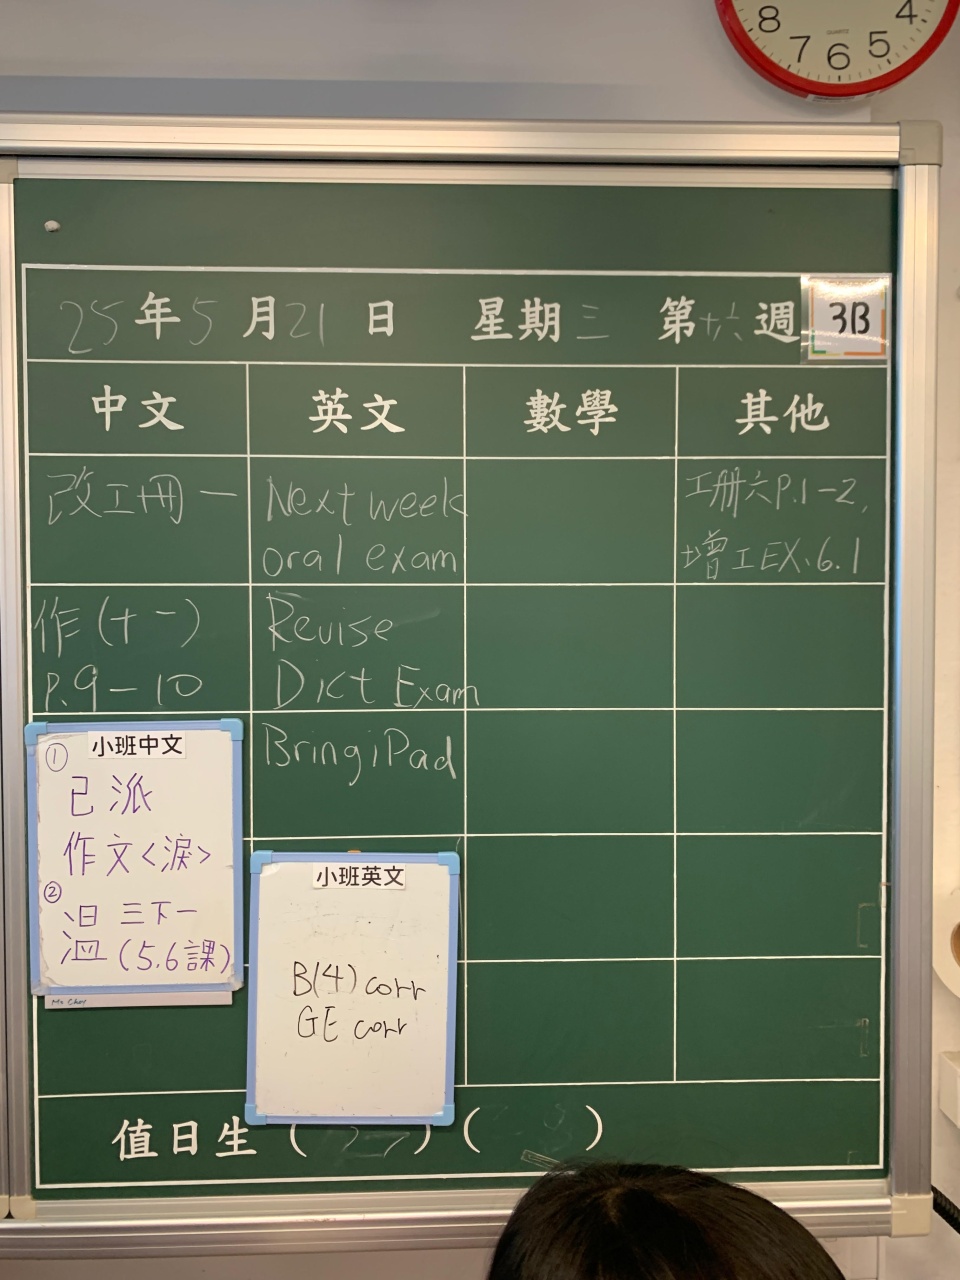 8 7 6 5 4
QUARTZ
25年5月21日 星期三 第十六週 3B
中文 英文 數學 其他
改工冊一
作(十一)
P.9-10
Next week
oral exam
Revise
Dict Exam
Bring iPad
工册六P.1-2,
增工EX.6.1
小班中文
① 已派
作文<淚>
② 溫 三下一
(5,6課)
小班英文
B(4) corr
GE corr
值日生 ( ) ( )